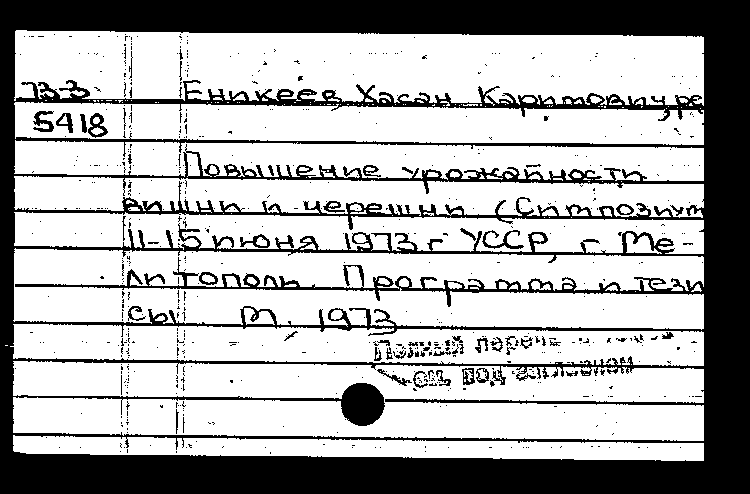 73-3 Еникеев, Хасан Каримович, ре
5418
Повышение урожайности
вишни и черешни (Симпозиум
11-15 июня 1973 г УССР, г. Ме-
литополь. Программа и тези
сы М., 1973
Полный перечень
см. под заглавием